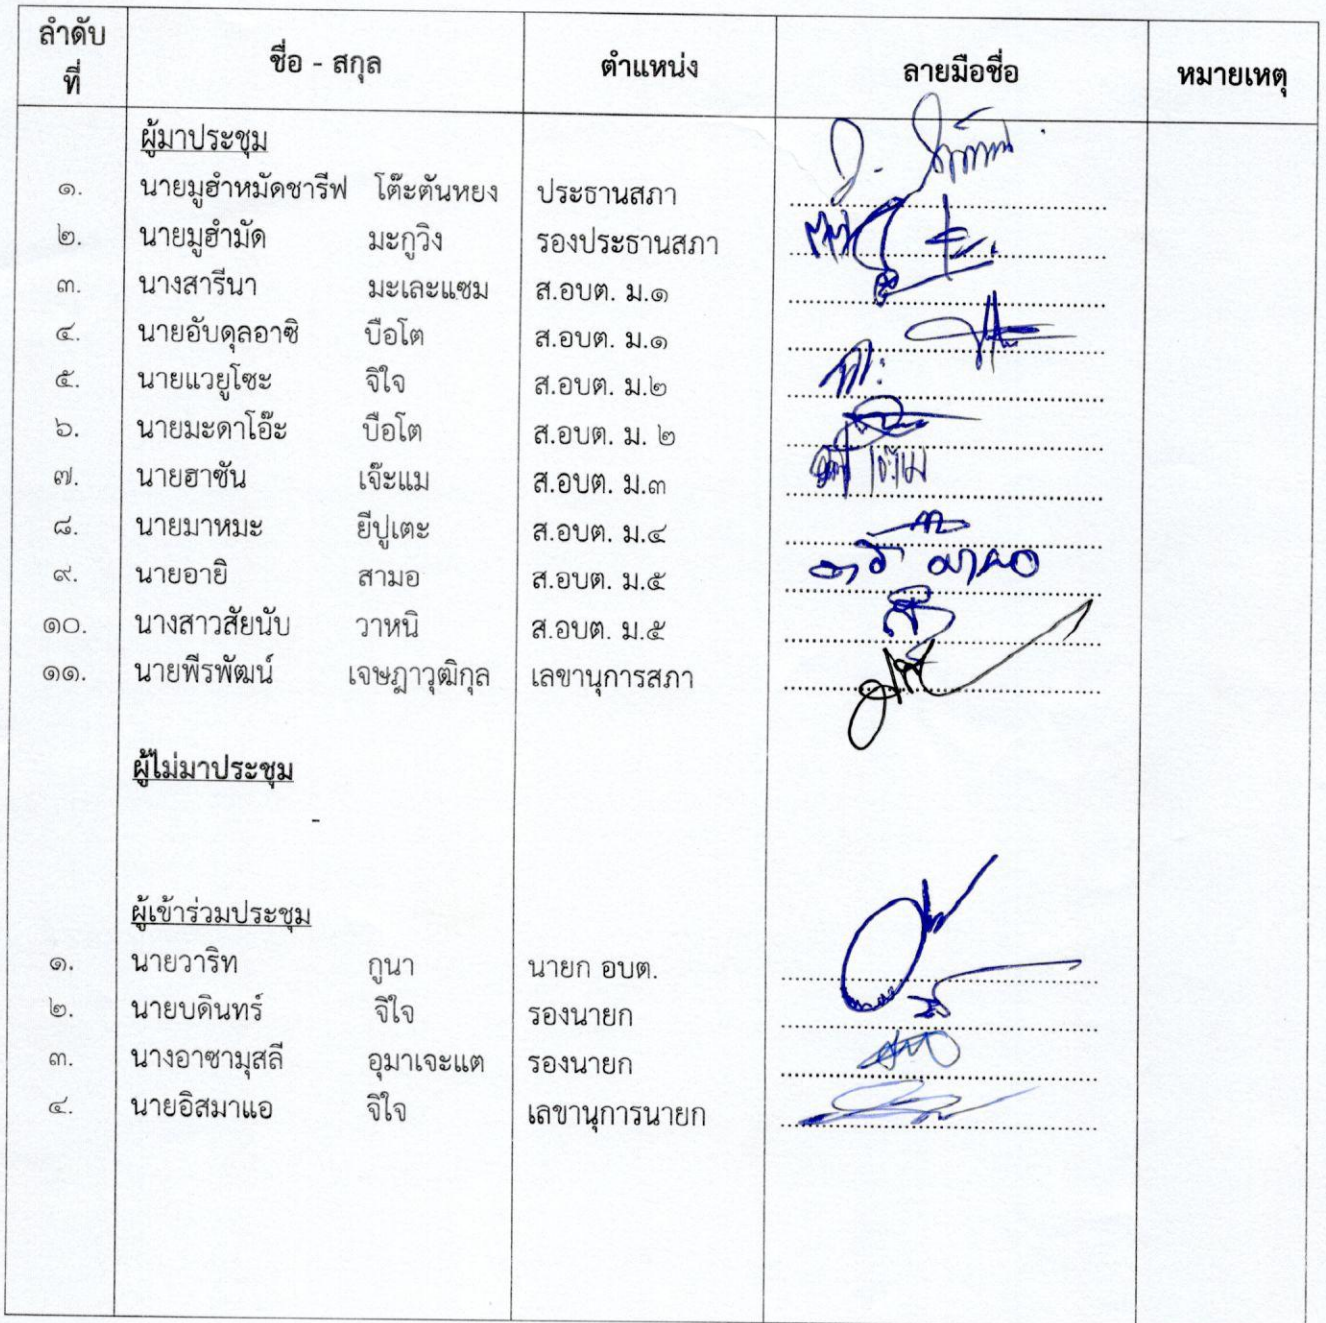 ลำดับที่ ชื่อ - สกุล ตำแหน่ง ลายมือชื่อ หมายเหตุ
ผู้มาประชุม
๑. นายมูฮำหมัดชารีฟ โต๊ะตันหยง ประธานสภา
๒. นายมูฮำมัด มะกูวิง รองประธานสภา
๓. นางสารีนา มะเละแซม ส.อบต. ม.๑
๔. นายอับดุลอาซิ บือโต ส.อบต. ม.๑
๕. นายแวยูโซะ จิใจ ส.อบต. ม.๒
๖. นายมะดาโอ๊ะ บือโต ส.อบต. ม. ๒
๗. นายฮาซัน เจ๊ะแม ส.อบต. ม.๓
๘. นายมาหมะ ยีปูเตะ ส.อบต. ม.๔
๙. นายอายิ สามอ ส.อบต. ม.๕
๑๐. นางสาวสัยนับ วาหนิ ส.อบต. ม.๕
๑๑. นายพีรพัฒน์ เจษฎาวุฒิกุล เลขานุการสภา
ผู้ไม่มาประชุม
-
ผู้เข้าร่วมประชุม
๑. นายวาริท กูนา นายก อบต.
๒. นายบดินทร์ จิใจ รองนายก
๓. นางอาซามุสลี อุมาเจะแต รองนายก
๔. นายอิสมาแอ จิใจ เลขานุการนายก